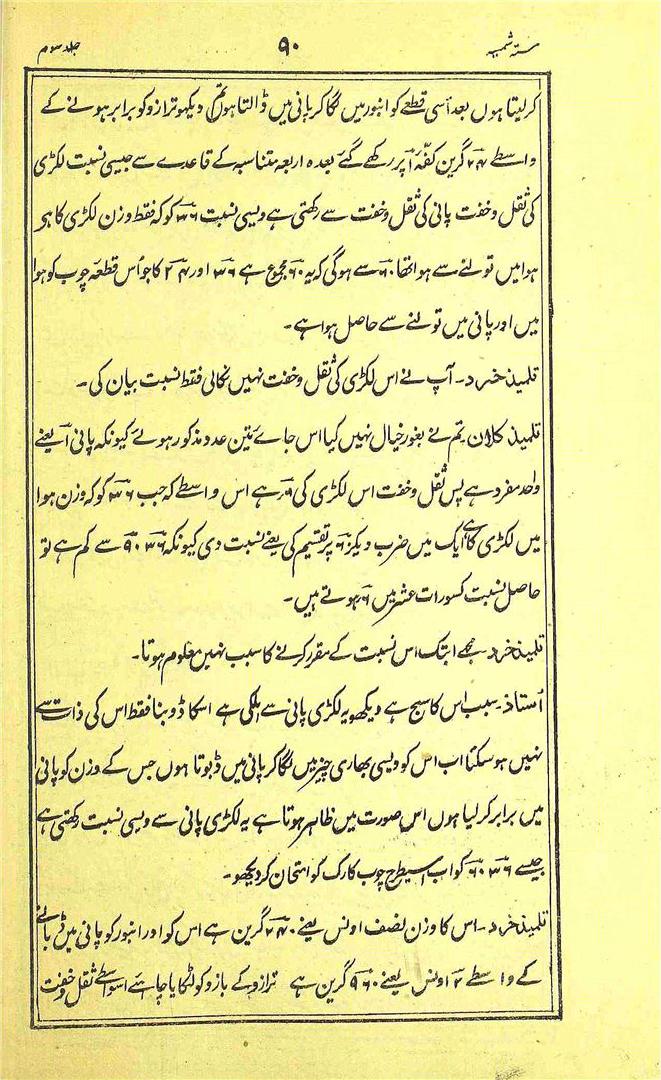 ستہ شمسیہ ۹۰ جلد سوم
کر لیتا ہوں بعد اُسی قطعے کو انبور میں لگا کر پانی میں ڈالتا ہوں تم دیکھو ترازو کو برابر ہونے کے
واسطے ۲۴ گرین کفّہ آ پر رکھے گئے بعدہ اربعہ متناسبہ کے قاعدے سے جیسی نسبت لکڑی
کی ثقل و خفت پانی کی ثقل و خفت سے رکھتی ہے ویسی نسبت ۳۶ کو کہ فقط وزن لکڑی کا ہو
ہوا میں تولنے سے ہوا تھا ۶۰ سے ہوگی کہ یہ ۶۰ مجموع ہے ۳۶ اور ۲۴ کا جو اُس قطعہ چوب کو ہوا
میں اور پانی میں تولنے سے حاصل ہوا ہے۔
تلمیذ خرد۔ آپ نے اس لکڑی کی ثقل و خفت نہیں نکالی فقط نسبت بیان کی۔
تلمیذ کلان۔ تم نے بغور خیال نہیں کیا اس جاے تین عدد مذکور ہوئے کیونکہ پانی ۱ یعنے
واحد مفرد ہے پس ثقل و خفت اس لکڑی کی ۶ء ہے اس واسطے کہ جب ۳۶ کو کہ وزن ہوا
میں لکڑی کا ہے ایک میں ضرب دیکر ۶۰ پر تقسیم کی یعنے نسبت دی کیونکہ ۳۶ ۶۰ سے کم ہے تو
حاصل نسبت کسورات عشر میں ۶ء ہوتے ہیں۔
تلمیذ خرد۔ مجھے ابتک اس نسبت کے مقرر کرنے کا سبب نہیں معلوم ہوتا۔
اُستاذ۔ سبب اس کا سہج ہے دیکھو یہ لکڑی پانی سے ہلکی ہے اسکا ڈوبنا فقط اس کی ذات سے
نہیں ہو سکتا اب اس کو ویسی بھاری چیز میں لگا کر پانی میں ڈبوتا ہوں جس کے وزن کو پانی
میں برابر کر لیا ہوں اس صورت میں ظاہر ہوتا ہے یہ لکڑی پانی سے ویسی نسبت رکھتی ہے
جیسے ۳۶ ۶۰ کو اب اسیطرح چوب کارک کو امتحان کر دیکھو۔
تلمیذ خرد۔ اس کا وزن نصف اونس یعنے ۲۴۰ گرین ہے اس کو اور انبور کو پانی میں ڈبانے
کے واسطے ۲ اونس یعنے ۹۶۰ گرین ہے ترازو کے بازو کو لٹکایا چاہئے اسواسطے ثقل و خفت